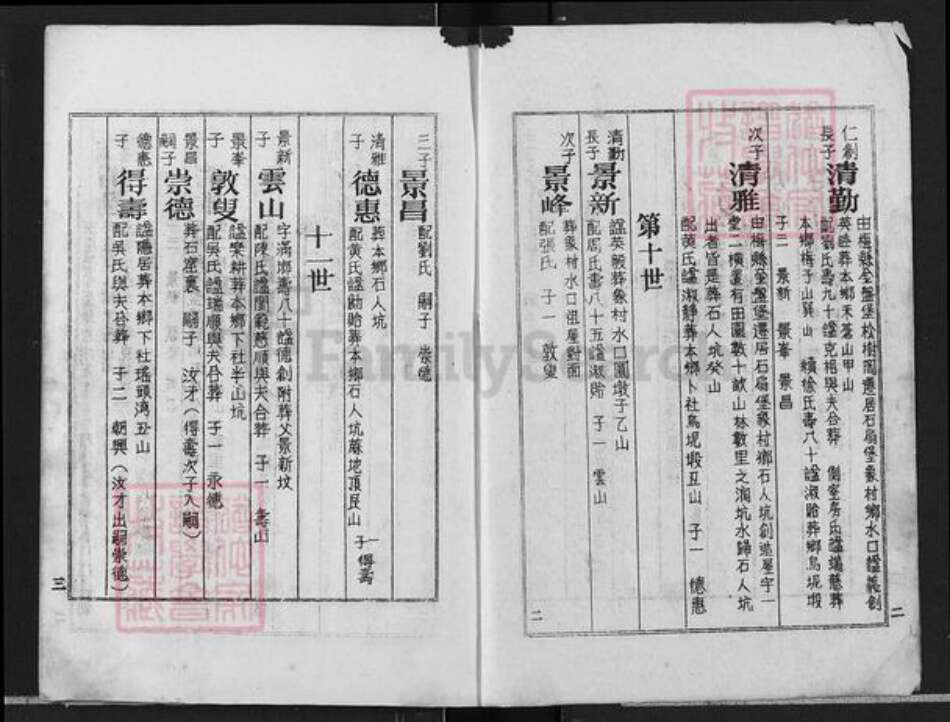 仁創
長子
清勤
由梅縣全盤堡松樹閣遷居石扇堡象村鄉水口諡義創
英 葬本鄉 山甲山
配劉氏壽九十諡克相與夫合葬 側室房氏諡端慈葬
本鄉梅子山巽山 續徐氏壽八十諡淑貽葬鄉烏坭塅
子三 景新 景峯 景昌
次子
清雅
由梅縣全盤堡遷居石扇堡象村鄉石人坑創造屋宇一
堂二橫置有田園數十畝山林數里之濶坑水歸石人坑
出者皆是葬石人坑癸山
配黄氏諡淑靜葬本鄉卜社烏坭塅丑山 子一 德惠
第十世
清勤
長子
景新
諡英毅葬象村水口圓墩子乙山
配居氏壽八十五諡淑貽 子一 雲山
次子
景峰
葬象村水口祖屋對面
配張氏 子一 敦叟
二
三子
景昌
配劉氏 嗣子 崇德
清雅
子
德惠
葬本鄉石人坑
配黄氏諡勤貽葬本鄉石人坑蔴地頂艮山 子一 得壽
十一世
景新
子
雲山
字滿 壽八十諡德創附葬父景新坟
配陳氏諡閫範慈順與夫合葬 子一 壽山
景峯
子
敦叟
諡樂耕葬本鄉下社半山坑
配吳氏諡瑞順與夫合葬 子一 永德
景昌
嗣子
崇德
葬石窟裏 嗣子 汝才(得壽次子入嗣)
德惠
子
得壽
諡隱居葬本鄉下社瑤頭灣丑山
配吳氏與夫合葬 子二 朝興(汝才出嗣崇德)
三
FamilySearch